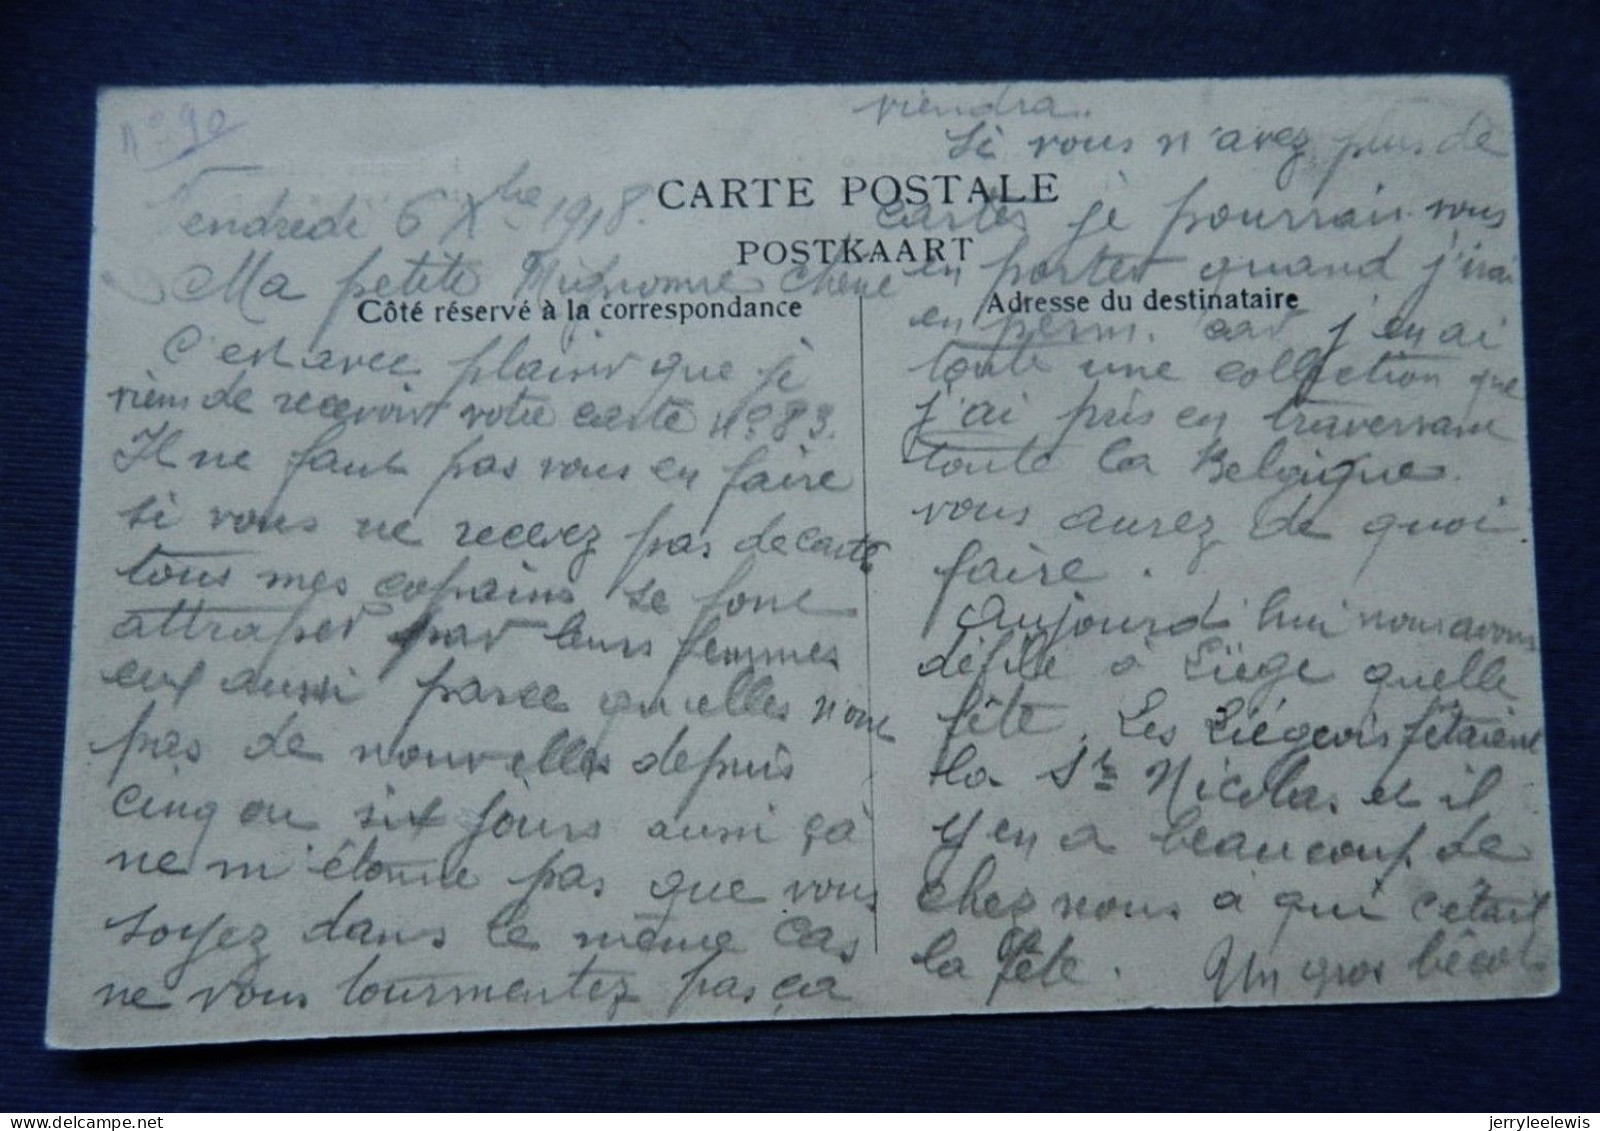 N° 90
Vendredi 6 Xbre 1918.
CARTE POSTALE
POSTKAART
Côté réservé à la correspondance
Adresse du destinataire
Ma petite Mignonne Chérie
C'est avec plaisir que je
viens de recevoir votre carte N° 83.
Il ne faut pas vous en faire
si vous ne recevez pas de carte
tous mes copains se font
attraper par leurs femmes
eux aussi parce qu'elles n'ont
pas de nouvelles depuis
cinq ou six jours aussi çà
ne m'étonne pas que vous
soyez dans le même cas
ne vous tourmentez pas ça
viendra.
Si vous n'avez plus de
cartes je pourrais vous
en porter quand j'irai
en perm. car j'en ai
toute une collection que
j'ai pris en traversant
toute la Belgique.
vous aurez de quoi
faire.
Aujourd'hui nous avons
défilé à Liège quelle
fête. Les Liégeois fêtaient
la St Nicolas et il
y en a beaucoup de
chez nous à qui c'était
la fête. Un gros bécot
jerryleelewis